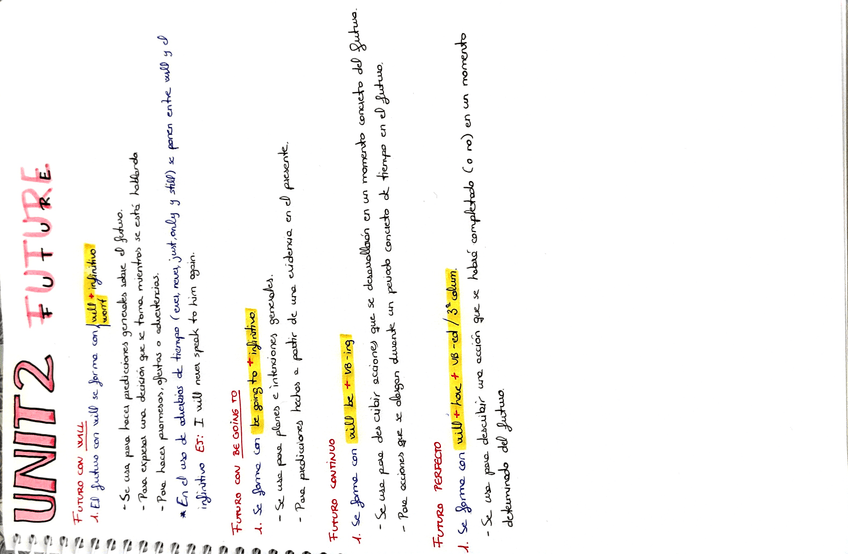 UNIT 2 FUTURE
FUTURE
FUTURO CON WILL
1. El futuro con will se forma con will + infinitivo
won't
- Se usa para hacer predicciones generales sobre el futuro.
- Para expresar una decisión que se toma mientras se está hablando
- Para hacer promesas, ofertas o advertencias.
* En el uso de adverbios de tiempo (ever, never, just, only y still) se ponen entre will y el
infinitivo EJ: I will never speak to him again.
FUTURO CON BE GOING TO
1. Se forma con be going to + infinitivo
- Se usa para planes e intenciones generales.
- Para predicciones hechas a partir de una evidencia en el presente.
FUTURO CONTINUO
1. Se forma con will be + VB-ing
- Se usa para describir acciones que se desarrollarán en un momento concreto del futuro.
- Para acciones que se alargan durante un periodo concreto de tiempo en el futuro.
FUTURO PERFECTO
1. Se forma con will + have + VB-ed / 3ª colum.
- Se usa para describir una acción que se habrá completado (o no) en un momento
determinado del futuro.